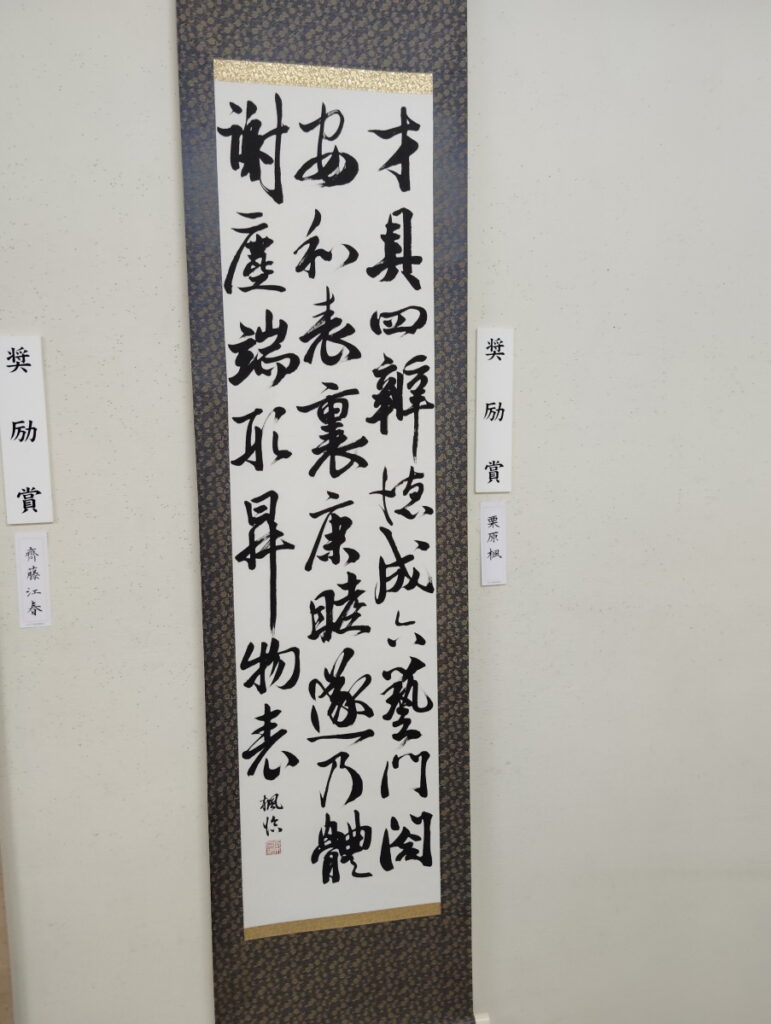 奨励賞
栗原楓
才具四辯德成六藝門
安和表裏康睦遂乃體
謝塵端形昇物表
楓
奨励賞
齊藤江春